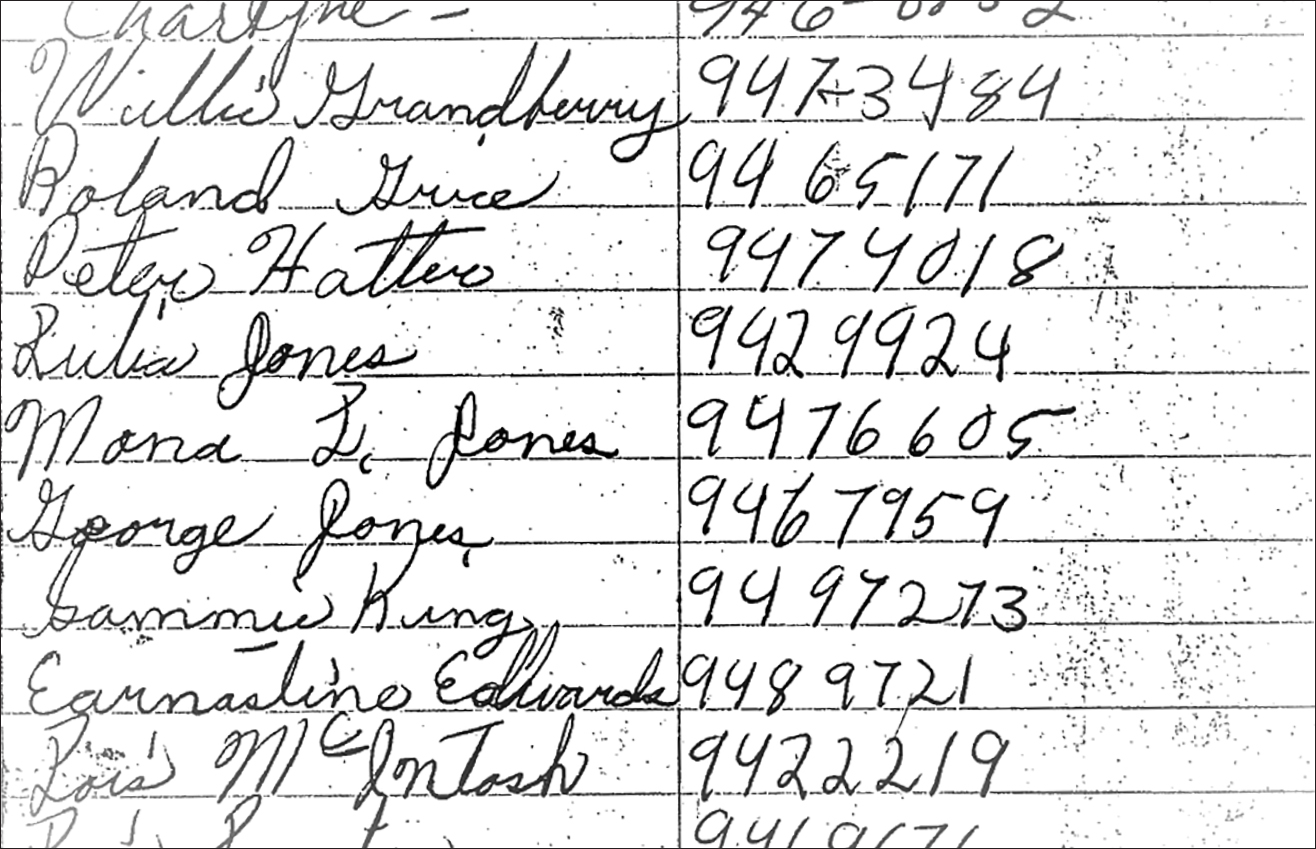 Charlyne -
Willie Grandberry 947-3484
Roland Grice 9465171
Peter Hatter 9474018
Lula Jones 9429924
Mona L. Jones 9476605
George Jones 9467959
Sammie King 9497273
Earnastine Edwards 948 9721
Lois McIntosh 9422219